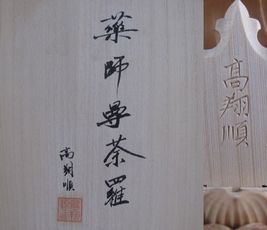 藥師尊荼羅
高翔順
高翔順